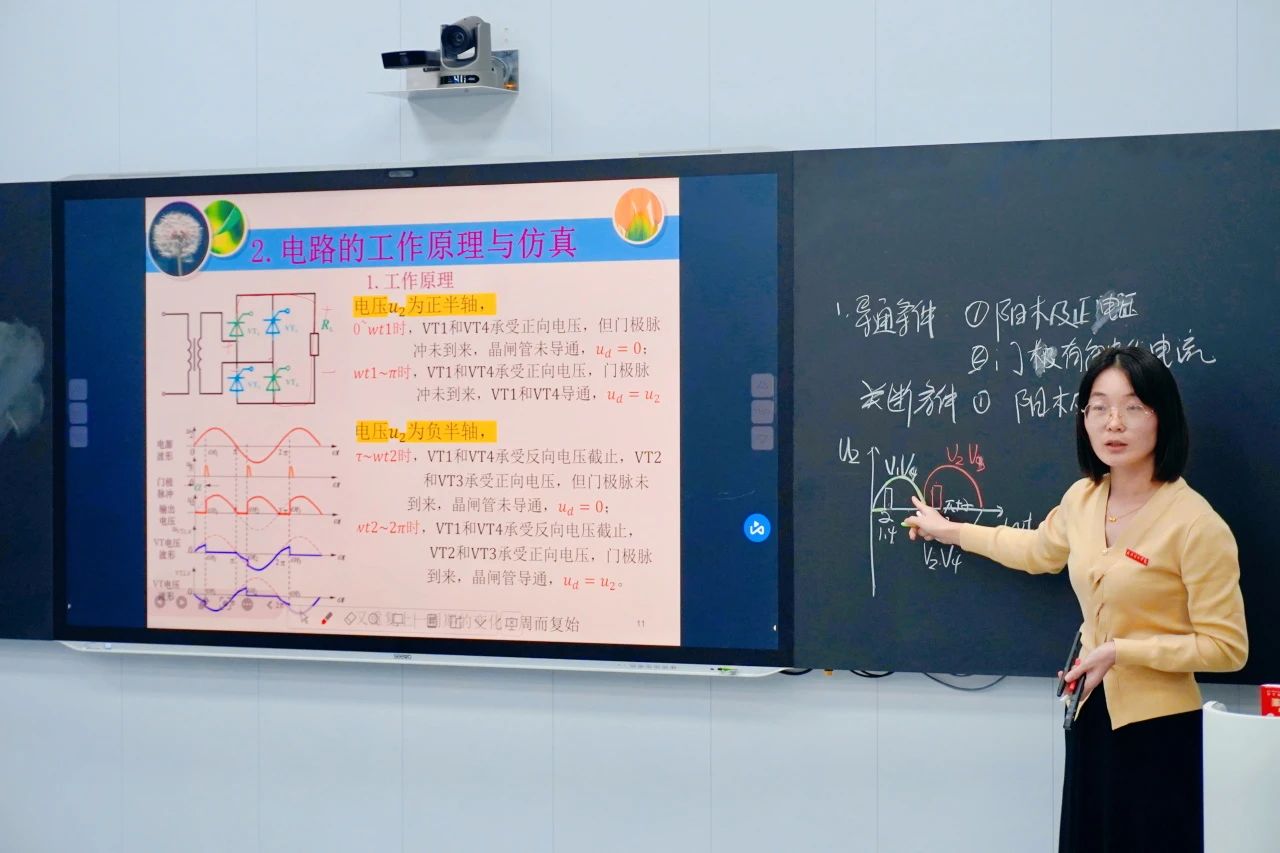 2. 电路的工作原理与仿真
1. 工作原理
电压u₂为正半轴，
0~wt1时，VT1和VT4承受正向电压，但门极脉
冲未到来，晶闸管未导通，u_d = 0；
wt1~π时，VT1和VT4承受正向电压，门极脉
冲未到来，VT1和VT4导通，u_d = u₂
电压u₂为负半轴，
τ~wt2时，VT1和VT4承受反向电压截止，VT2
和VT3承受正向电压，但门极脉未
到来，晶闸管未导通，u_d = 0；
vt2~2π时，VT1和VT4承受反向电压截止，
VT2和VT3承受正向电压，门极脉
到来，晶闸管导通，u_d = u₂。
周而复始
11
电源
波形
门极
脉冲
输出
电压
VT电压
波形
VT电压
波形
seewo
1. 导通条件 ① 阳极正电压
② 门极有
电流
关断条件 ① 阳极
U₂
V₁V₄
V₂V₃
1.4
V₂.V₄
wt